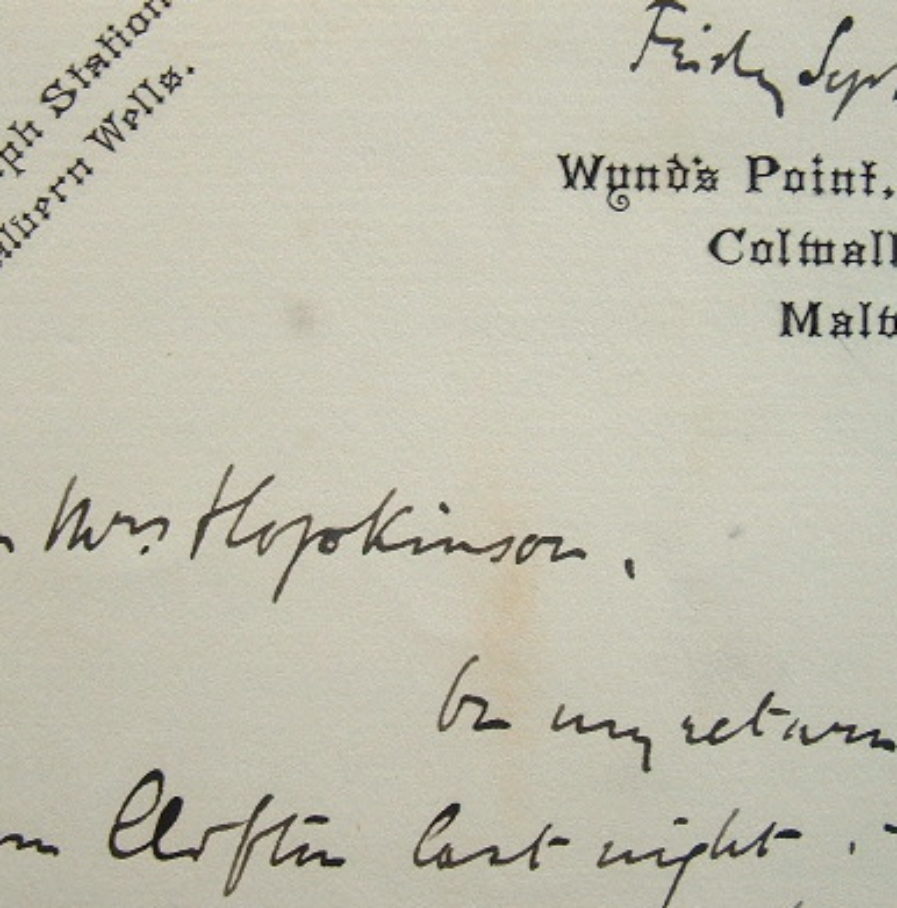 ph Station
alvern Wells.
Friday Sept
Wynd's Point,
Colwall
Malv
Mrs. Hopkinson,
On my return
Clifton last night